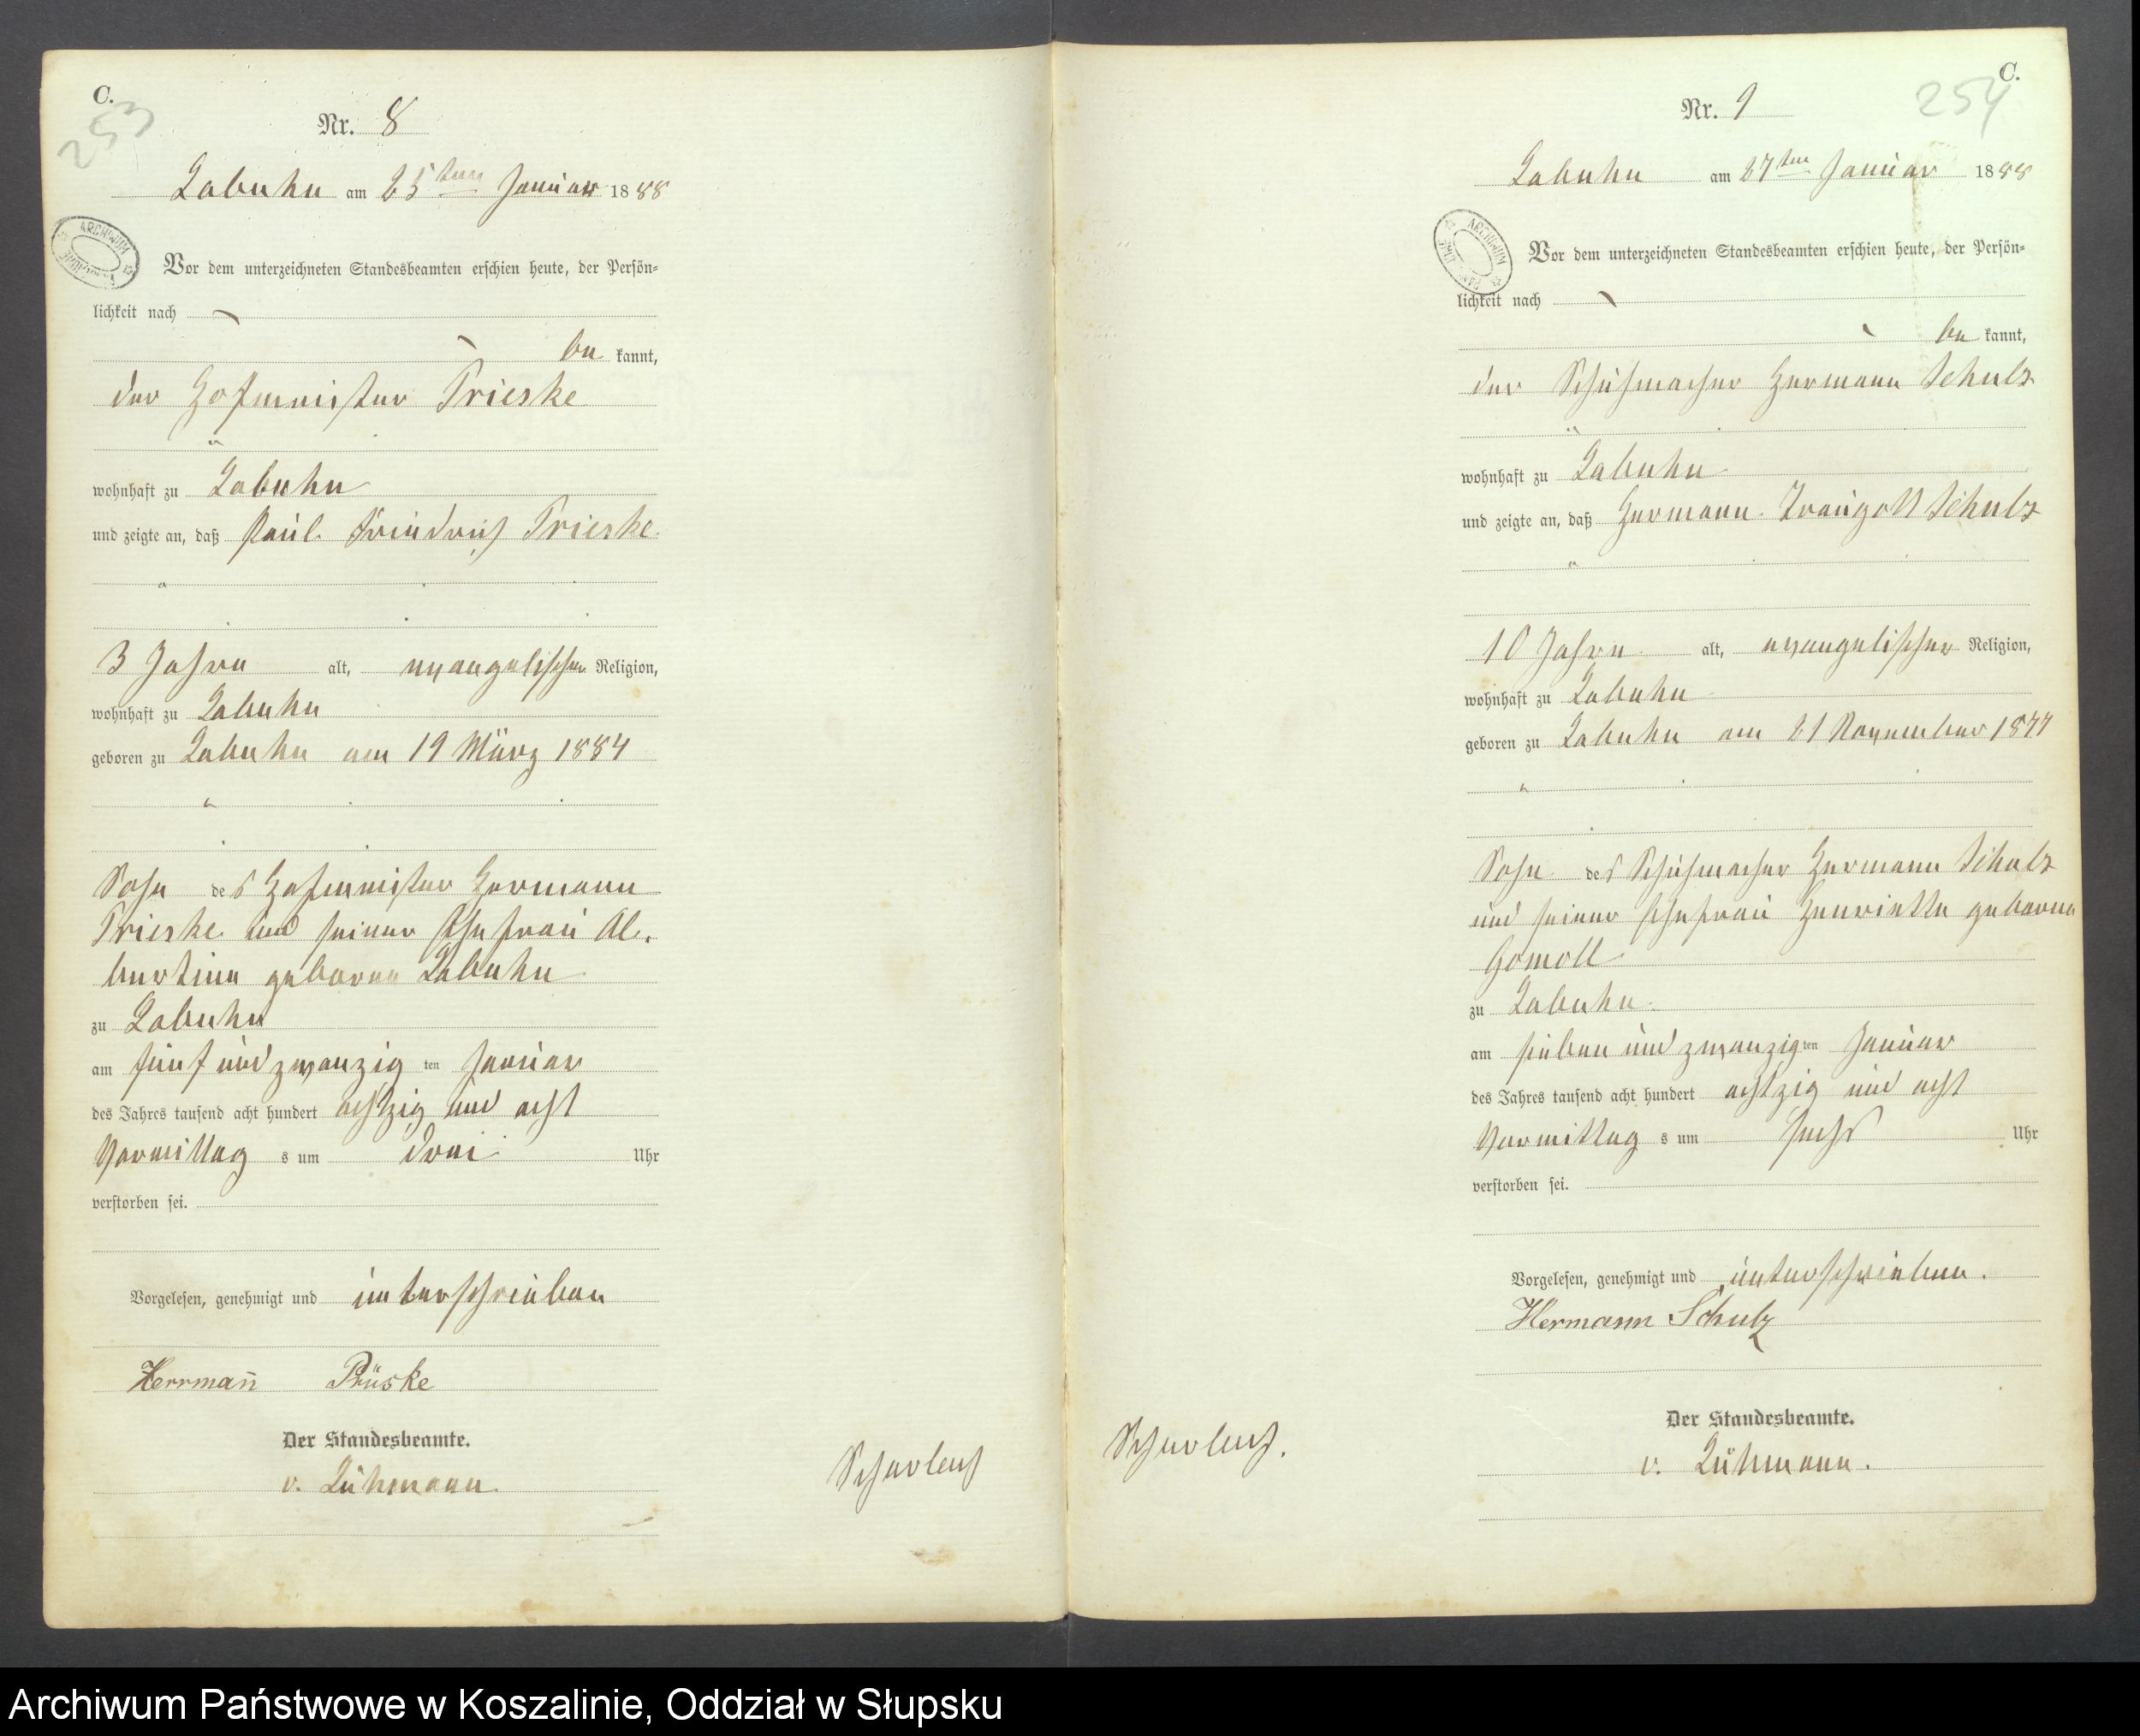 C.
253
Nr. 8
Labuhn am 25ten Januar 1888
ARCHIWUM
Vor dem unterzeichneten Standesbeamten erschien heute, der Persön=
lichkeit nach
be kannt,
der Hofmeister Prieske
wohnhaft zu Labuhn
und zeigte an, daß Paul Friedrich Prieske
3 Jahre alt, evangelischer Religion,
wohnhaft zu Labuhn
geboren zu Labuhn am 19 März 1884
Sohn des Hofmeister Hermann
Prieske und seiner Ehefrau Al-
bertine geborene Labuhn
zu Labuhn
am fünf und zwanzig ten Januar
des Jahres tausend acht hundert achtzig und acht
Vormittag s um drei Uhr
verstorben sei.
Vorgelesen, genehmigt und unterschrieben
Herrmann Prüske
Der Standesbeamte.
v. Lühmann.
C.
254
Nr. 9
Labuhn am 27ten Januar 1888
ARCHIWUM
Vor dem unterzeichneten Standesbeamten erschien heute, der Persön=
lichkeit nach
be kannt,
der Schuhmacher Hermann Schulz
wohnhaft zu Labuhn
und zeigte an, daß Hermann Traugott Schulz
10 Jahre alt, evangelischer Religion,
wohnhaft zu Labuhn
geboren zu Labuhn am 21 November 1877
Sohn des Schuhmacher Hermann Schulz
und seiner Ehefrau Henriette geborene
Gomoll
zu Labuhn
am sieben und zwanzig ten Januar
des Jahres tausend acht hundert achtzig und acht
Vormittag s um sechs Uhr
verstorben sei.
Vorgelesen, genehmigt und unterschrieben.
Hermann Schulz
Der Standesbeamte.
v. Lühmann.
Archiwum Państwowe w Koszalinie, Oddział w Słupsku